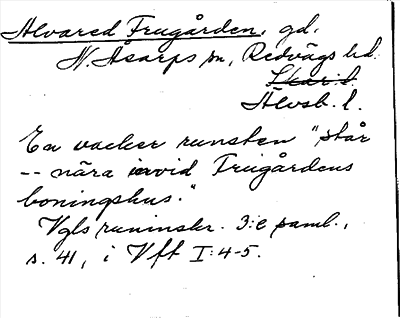 Alvared Frugården, gd.
N. Åsarps sn, Redvägs hd.
Skar. l.
Älvsb. l.
En vacker runsten "står
-- nära invid Frugårdens
boningshus."
Vgls runinskr. 3:e saml.,
s. 41, i Vft I:4-5.